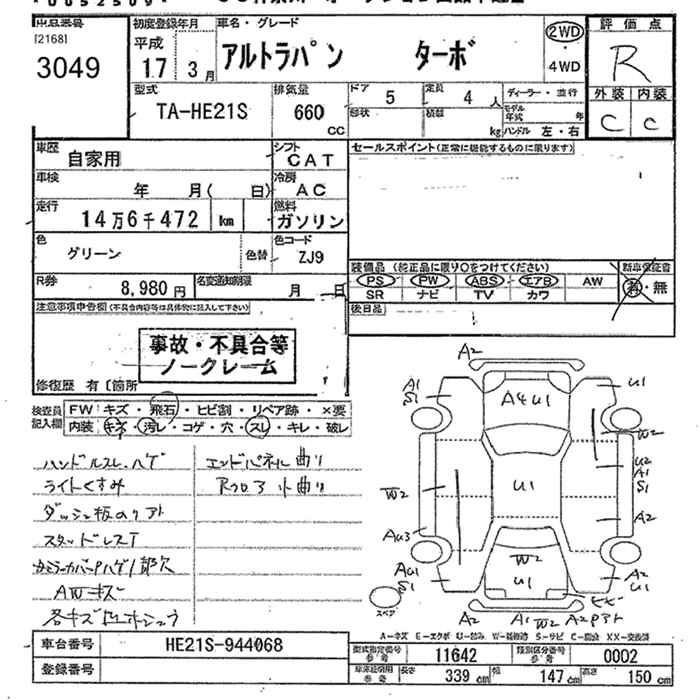 [2168]
3049
初度登録年月
平成
17 3月
車名・グレード
アルトラパン ターボ
2WD
・
4WD
評価点
R
外装 内装
C C
型式
TA-HE21S
排気量
660
CC
ドア 5
定員 4 人
形状
積載 kg
ディーラー・並行
モデル年式 年
ハンドル 左・右
車歴 自家用
シフト CAT
車検 年 月( 日)
冷房 AC
走行 14万6千472 km
燃料 ガソリン
色 グリーン
色替
色コード ZJ9
R券 8,980円
名変通知期限 月 日
セールスポイント(正常に機能するものに限ります)
装備品(純正品に限り○をつけてください)
新車保証書
PS PW ABS エアB AW
有・無
SR ナビ TV カワ
後日品
注意事項申告欄(不具合内容等は具体的に記入して下さい)
事故・不具合等
ノークレーム
修復歴 有〔箇所
検査員
記入欄
FW キズ・飛石・ヒビ割・リペア跡・×要
内装 キズ・汚レ・コゲ・穴・スレ・キレ・破レ
ハンドルスレ、ハゲ
ライトくすみ
ダッシュ板のリアト
スタッドレスT
AWキズ
エンドパネル曲り
Rフロア小曲り
A2
A1
S1
A4U1
U1
W2
U2
A1
S1
W2
U1
A2
AU3
AU1
S1
W2
U1
A2
U1
XX
A2
A1
W2
スペア
A-キズ E-エクボ U-凹み W-補修跡 S-サビ C-腐食 XX-交換済
車台番号 HE21S-944068
登録番号
型式指定番号
参考
11642
類別区分番号
参考
0002
長さ 339 cm 幅 147 cm 高さ 150 cm